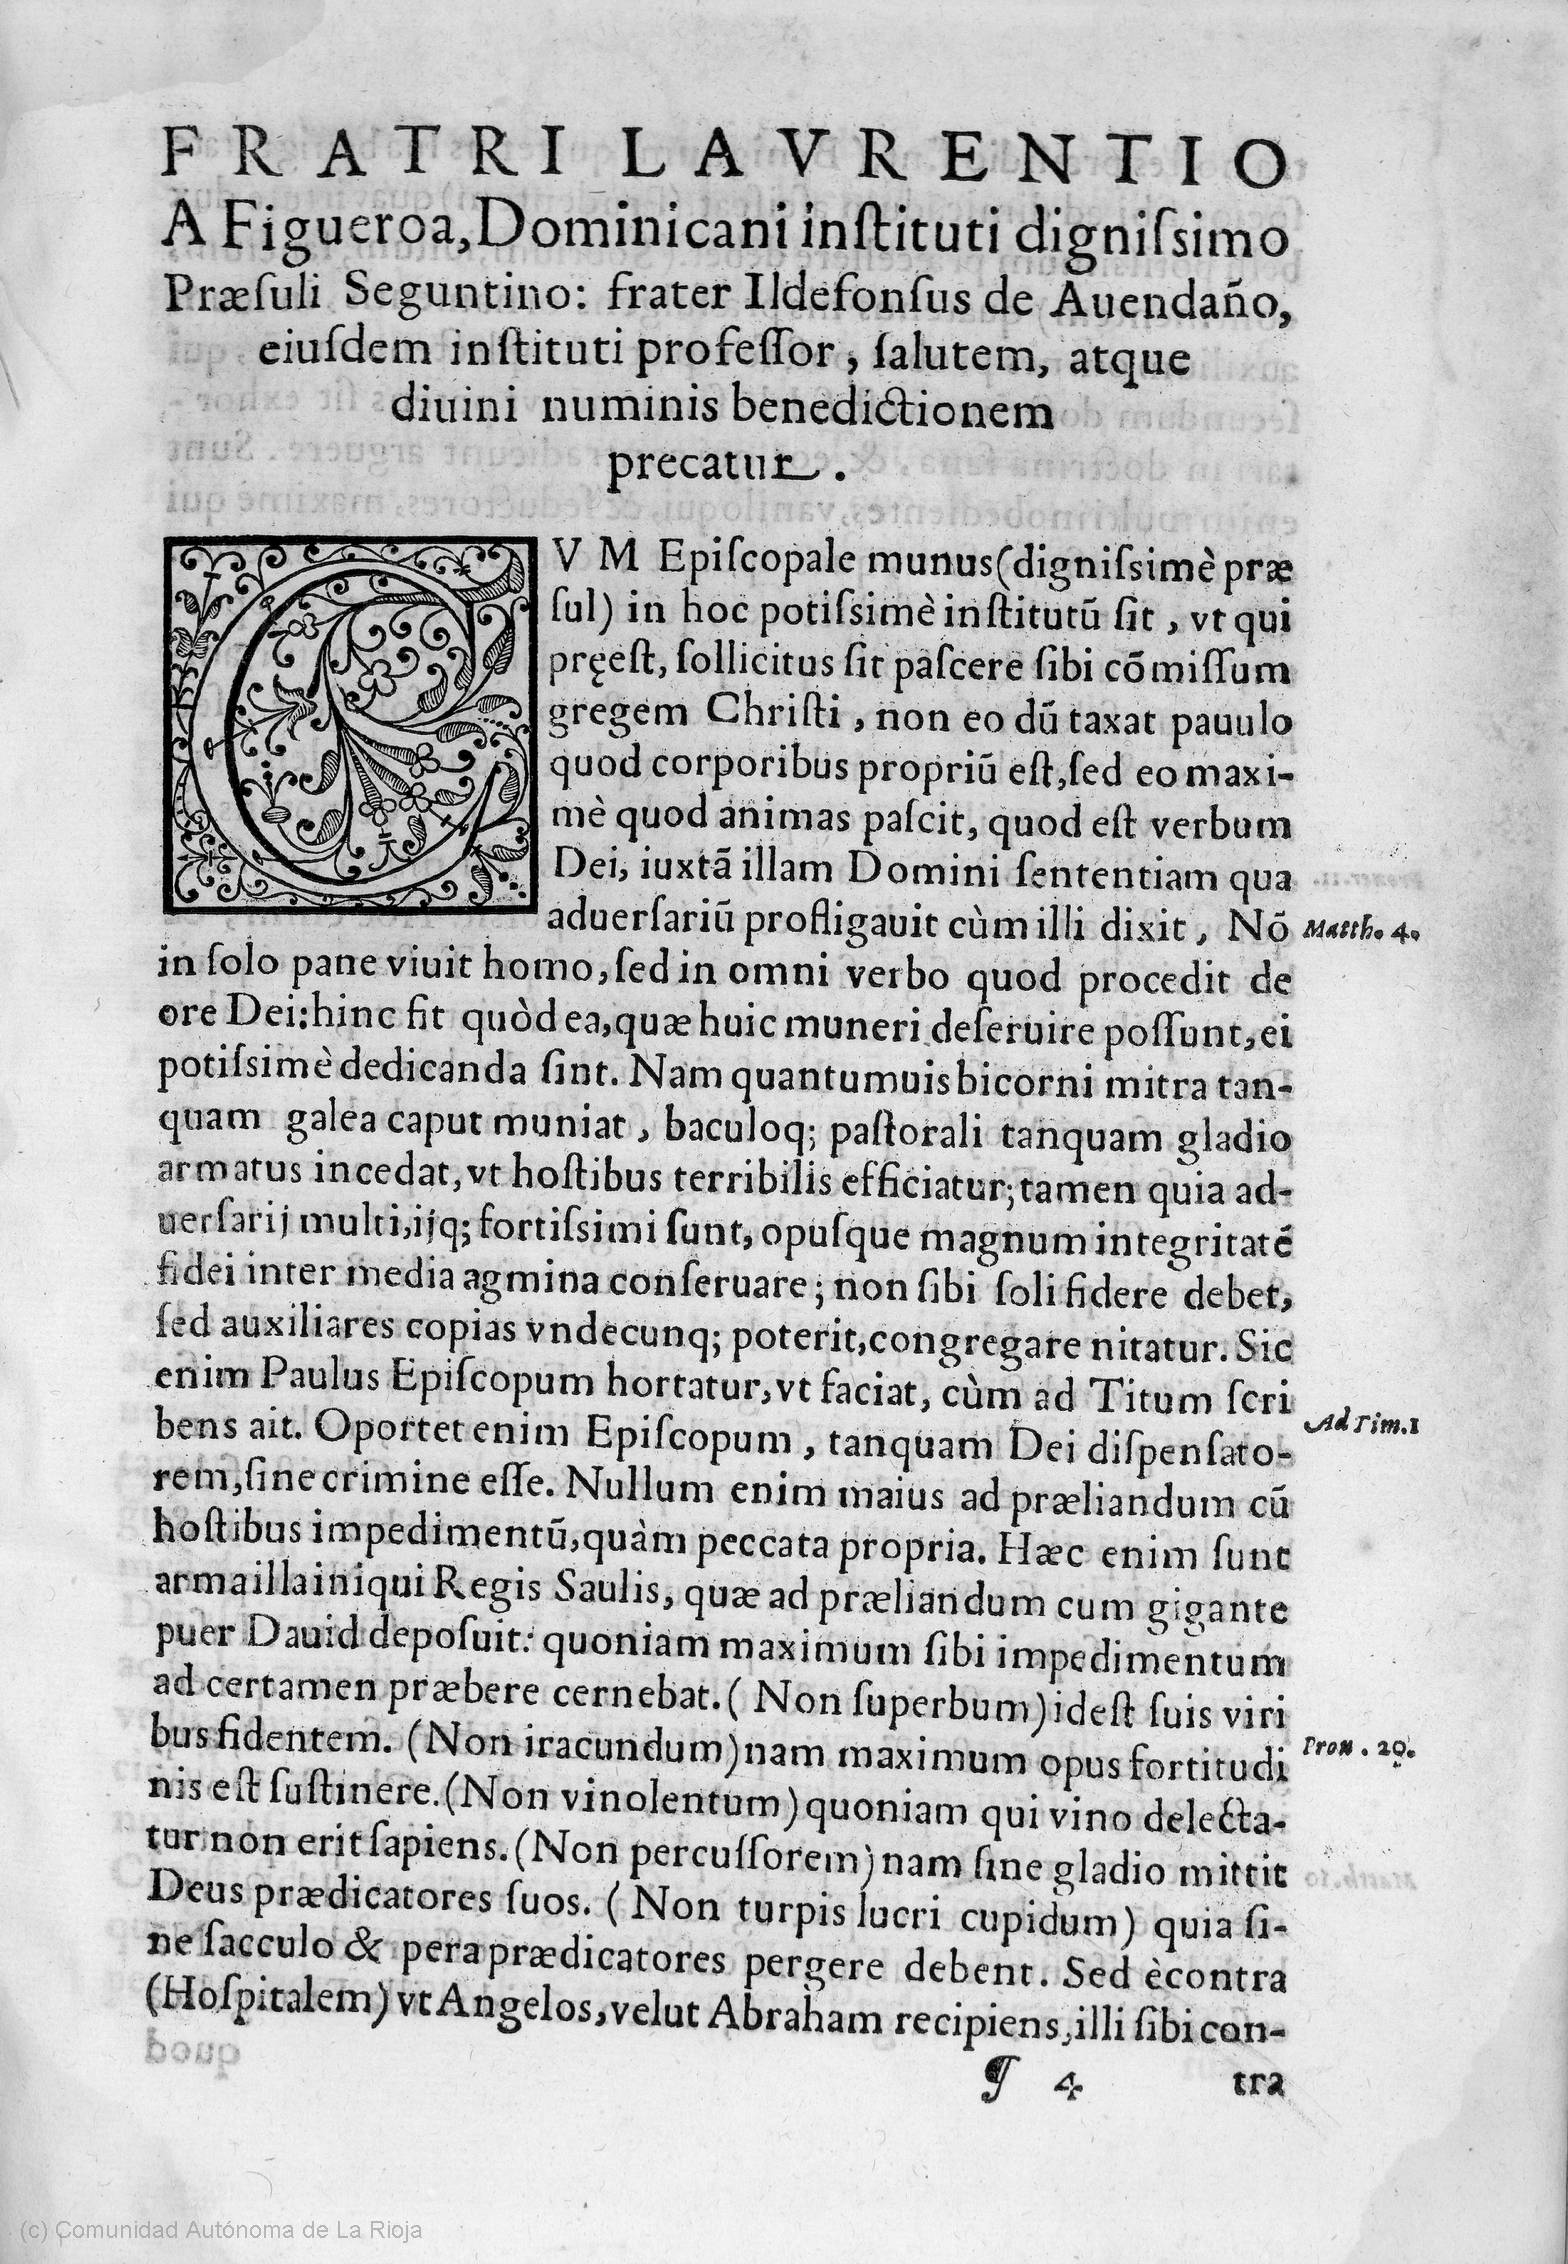 FRATRI LAVRENTIO
A Figueroa, Dominicani inſtituti digniſsimo
Præſuli Seguntino: frater Ildefonſus de Auendaño,
eiuſdem inſtituti profeſſor, ſalutem, atque
diuini numinis benedictionem
precatur.
CVM Epiſcopale munus (digniſsimè præ
ſul) in hoc potiſsimè inſtitutũ ſit, vt qui
pręeſt, ſollicitus ſit paſcere ſibi cõmiſſum
gregem Chriſti, non eo dũ taxat pauulo
quod corporibus propriũ eſt, ſed eo maxi-
mè quod animas paſcit, quod eſt verbum
Dei, iuxtã illam Domini ſententiam qua
aduerſariũ profligauit cùm illi dixit, Nõ
Matth. 4.
in ſolo pane viuit homo, ſed in omni verbo quod procedit de
ore Dei: hinc fit quòd ea, quæ huic muneri deſeruire poſſunt, ei
potiſsimè dedicanda ſint. Nam quantumuis bicorni mitra tan-
quam galea caput muniat, baculoq; paſtorali tanquam gladio
armatus incedat, vt hoſtibus terribilis efficiatur; tamen quia ad-
uerſarij multi, ijq; fortiſsimi ſunt, opuſque magnum integritatẽ
fidei inter media agmina conſeruare; non ſibi ſoli fidere debet,
ſed auxiliares copias vndecunq; poterit, congregare nitatur. Sic
enim Paulus Epiſcopum hortatur, vt faciat, cùm ad Titum ſcri
bens ait. Oportet enim Epiſcopum, tanquam Dei diſpenſato-
Ad Tim. 1
rem, ſine crimine eſſe. Nullum enim maius ad præliandum cũ
hoſtibus impedimentũ, quàm peccata propria. Hæc enim ſunt
arma illa iniqui Regis Saulis, quæ ad præliandum cum gigante
puer Dauid depoſuit: quoniam maximum ſibi impedimentum
ad certamen præbere cernebat. (Non ſuperbum) id eſt ſuis viri
bus fidentem. (Non iracundum) nam maximum opus fortitudi
Prou. 20.
nis eſt ſuſtinere. (Non vinolentum) quoniam qui vino delecta-
tur non erit ſapiens. (Non percuſſorem) nam ſine gladio mittit
Deus prædicatores ſuos. (Non turpis lucri cupidum) quia ſi-
ne ſacculo & pera prædicatores pergere debent. Sed ècontra
(Hoſpitalem) vt Angelos, velut Abraham recipiens, illi ſibi con-
¶ 4 tra
(c) Comunidad Autónoma de La Rioja